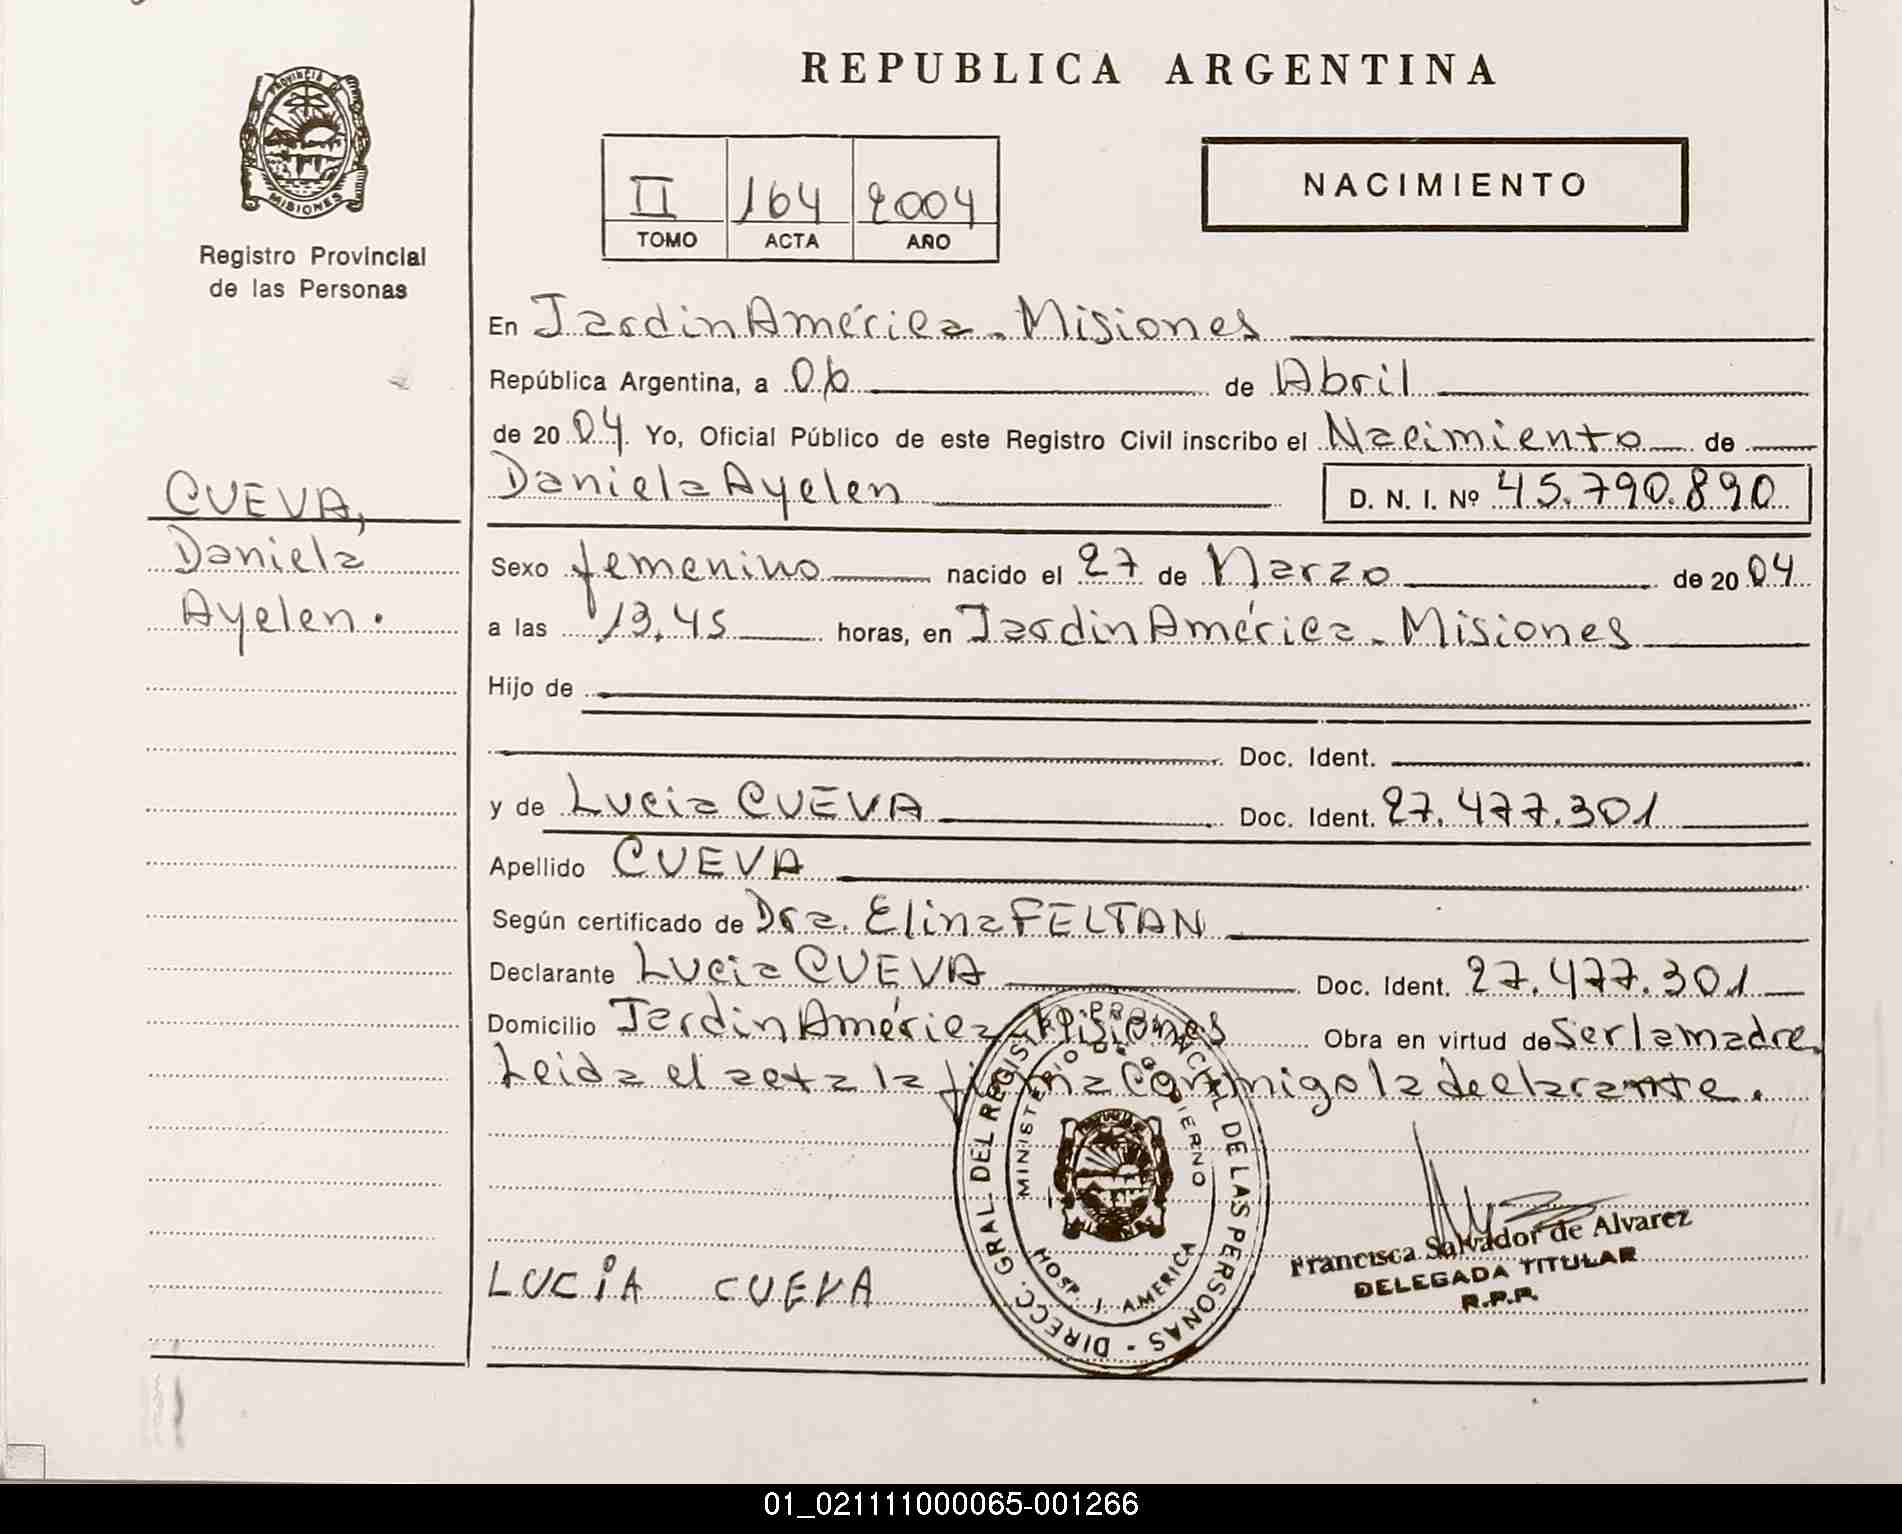 REPUBLICA ARGENTINA
PROVINCIA DE
MISIONES
Registro Provincial
de las Personas
II 164 2004
TOMO ACTA AÑO
NACIMIENTO
En Jardin América - Misiones
República Argentina, a 06 de Abril
de 2004. Yo, Oficial Público de este Registro Civil inscribo el Nacimiento de
Daniela Ayelen D. N. I. Nº 45.790.890
CUEVA,
Daniela
Ayelen.
Sexo femenino nacido el 27 de Marzo de 2004
a las 13,45 horas, en Jardin América - Misiones
Hijo de
Doc. Ident.
y de Lucia CUEVA Doc. Ident. 27.477.301
Apellido CUEVA
Según certificado de Dra. Elina FELTAN
Declarante Lucia CUEVA Doc. Ident. 27.477.301
Domicilio Jardin América - Misiones Obra en virtud de Ser la madre.
Leida el acta la firma conmigo la declarante.
DIRECC. GRAL. DEL REGISTRO PROVINCIAL DE LAS PERSONAS -
MINISTERIO DE GOBIERNO
HOSP. J. AMERICA
LUCIA CUEVA
Francisca Salvador de Alvarez
DELEGADA TITULAR
R.P.P.
01_021111000065-001266